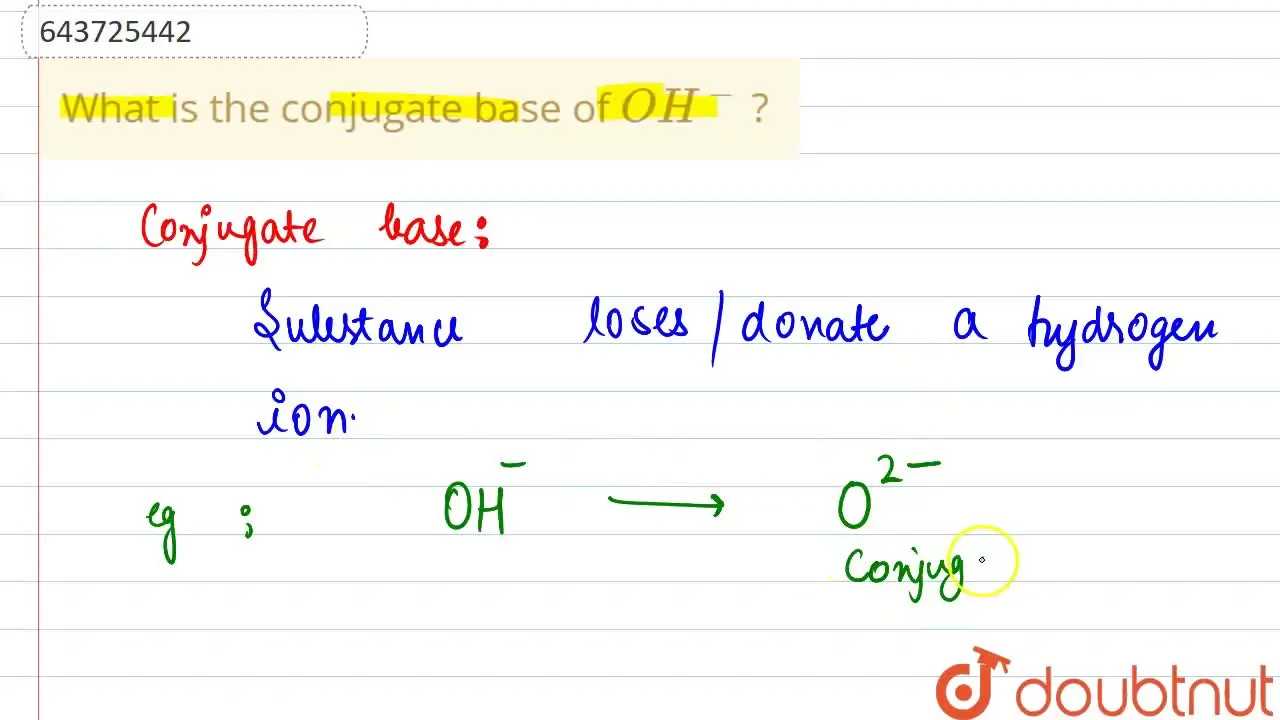 643725442
What is the conjugate base of OH⁻ ?
Conjugate base:
Substance loses/donate a hydrogen
ion.
eg ; OH⁻ → O²⁻
Conjug
doubtnut